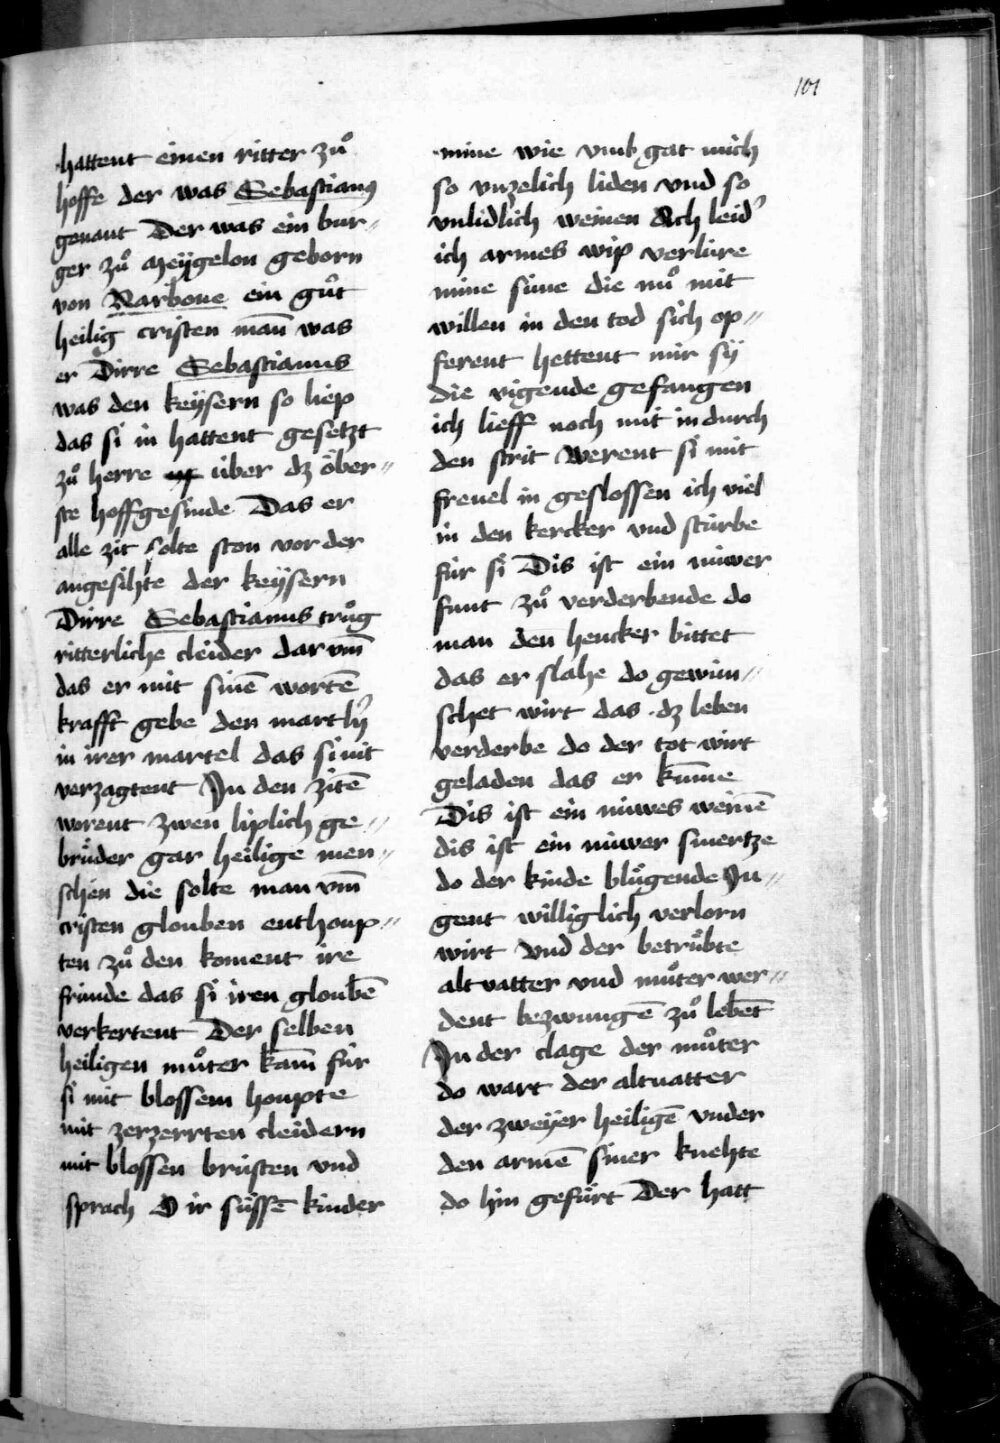 101
hattent einen ritter zuͦ
hoffe der was Sebastianꝰ
genant Der was ein bur〃
ger zuͦ Meÿgelon geborn
von Narbone ein guͦt
heilig cristen man̄ was
er Dirre Sebastianus
was den keÿsern so liep
das si in hattent gesetzt
zuͦ herre uͤber dz oͤber〃
ste hoffgesinde Das er
alle zit solte ston vor der
angesihte der keÿsern
Dirre Sebastianus truͦg
ritterliche cleider dar vm̄
das er mit sinē wortē
krafft gebe den martlr̄
in irer martel das si nit
verzagtent In den zitē
worent zwen liplich ge〃
bruͤder gar heilige men〃
schen die solte man vm̄
cristen glouben enthoup〃
ten zuͦ den koment ire
frúnde das si iren gloubē
verkertent Der selben
heiligen muͦter kam̄ fúr
si mit blossem houpte
mit zerzerrten cleidern
mit blossen brústen vnd
sprach O ir suͤssē kinder
mine wie vmb gat mich
so vnzelich liden vnd so
vnlidlich weinen Ach leid'
ich armes wip verlúre
mine súne die nuͦ mit
willen in den tod sich op〃
ferent hettent mir sÿ
die vigende gefangen
ich lieffe noch mit in durch
den strit Werent si mit
freuel in geslossen ich viel
in den kercker vnd stúrbe
fúr si Dis ist ein núwer
funt zuͦ verderbende do
man den hencker bittet
das er slahe do gewún〃
schet wirt das dz leben
verderbe do der tot wirt
geladen das er kum̄e
Dis ist ein núwes weinē
dis ist ein núwer smertze
do der kinde bluͤgende Ju〃
gent williglich verlorn
wirt Vnd der betruͤbte
alt vatter vnd muͦter wer〃
dent bezwungē zuͦ lebēt
In der clage der muͦter
do wart der alt vatter
der zweÿer heiligē vnder
den armē siner knehte
do hin gefuͤrt Der hatt